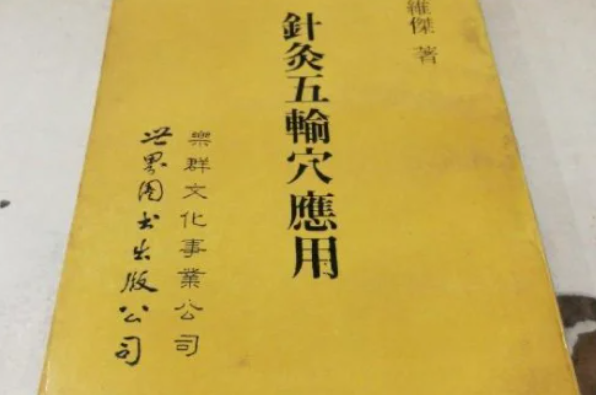 維傑 著
針灸五輸穴應用
樂群文化事業公司
世界图书出版公司